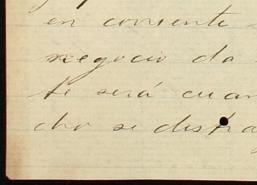 en consente
negocio da
te será cuan
cho se distra